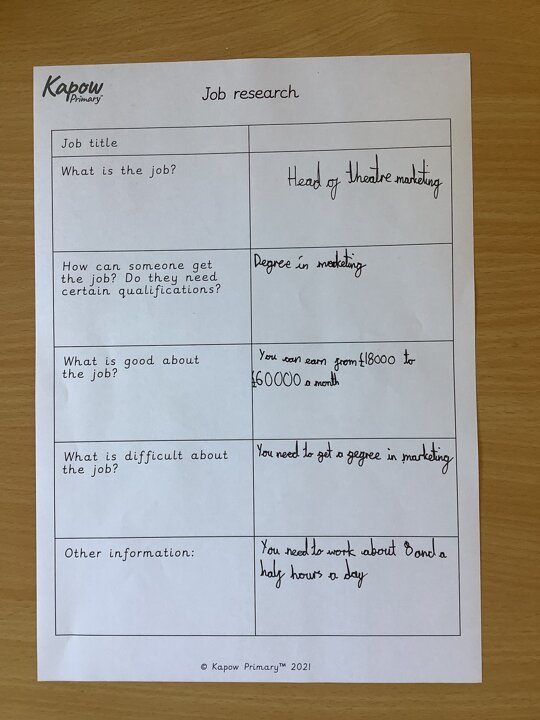 Kapow
Primary™
Job research
Job title
What is the job?
Head of theatre marketing
How can someone get
the job? Do they need
certain qualifications?
Degree in marketing
What is good about
the job?
You can earn from £18000 to
£60000 a month
What is difficult about
the job?
You need to get a gegree in marketing
Other information:
You need to work about 8 and a
half hours a day
© Kapow Primary™ 2021